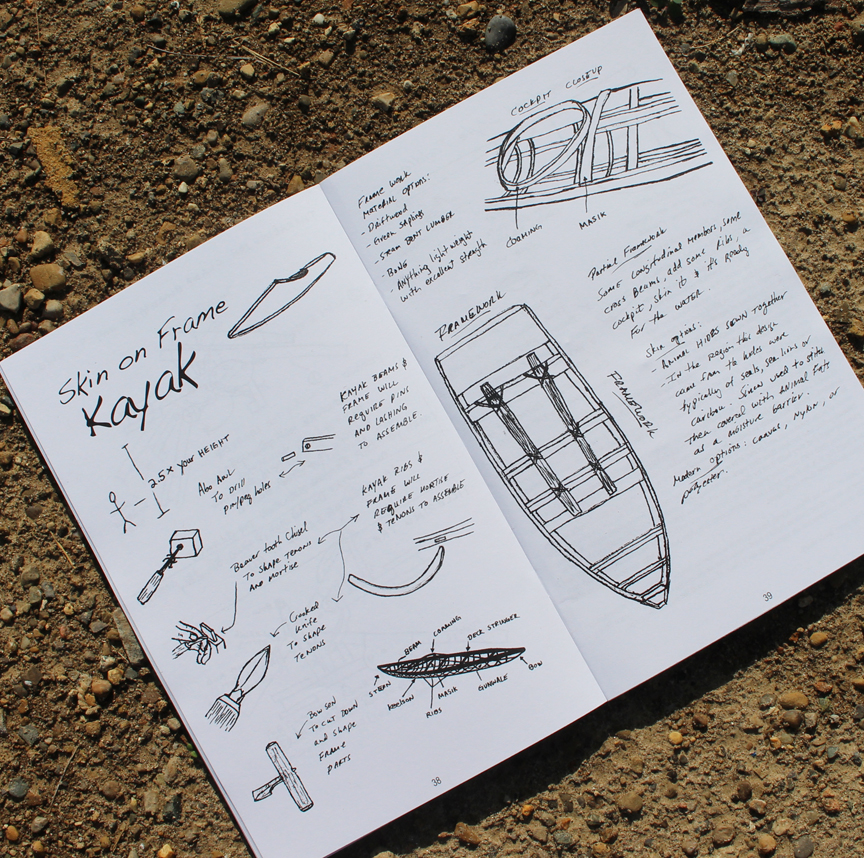 Skin on Frame
Kayak
2.5x your HEIGHT
Also Awl
To Drill
pin/peg holes
KAYAK BEAMS &
FRAME WILL
REQUIRE PINS
AND LASHING
TO ASSEMBLE.
KAYAK RIBS &
FRAME WILL
REQUIRE MORTISE
& TENONS TO ASSEMBLE
Beaver tooth Chisel
To Shape Tenons
and Mortise
Crooked
Knife
To Shape
TENONS
Bow Saw
To cut Down
and Shape
Frame
PARTS
BEAM
COAMING
DECK STRINGER
STERN
KEELSON
RIBS
MASIK
BOW
38
COCKPIT CLOSEUP
COAMING
MASIK
Frame work
MATERIAL OPTIONS:
- Driftwood
- Green saplings
- STEAM BENT LUMBER
- BONE
- Anything lightweight
with excellent strength
FRAMEWORK
FRAMEWORK
Partial Framework
Some Longitudinal Members, some
cross Beams, add some Ribs, a
cockpit, skin it & it's Ready
For the water.
Skin options:
- Animal HIDES SEWN Together
- In the Region this design
came from the holes were
typically of seals, sea lions or
caribou. Sinew used to stitch
then covered with Animal FATS
as a moisture barrier.
Modern options: canvas, Nylon, or
polyester.
39